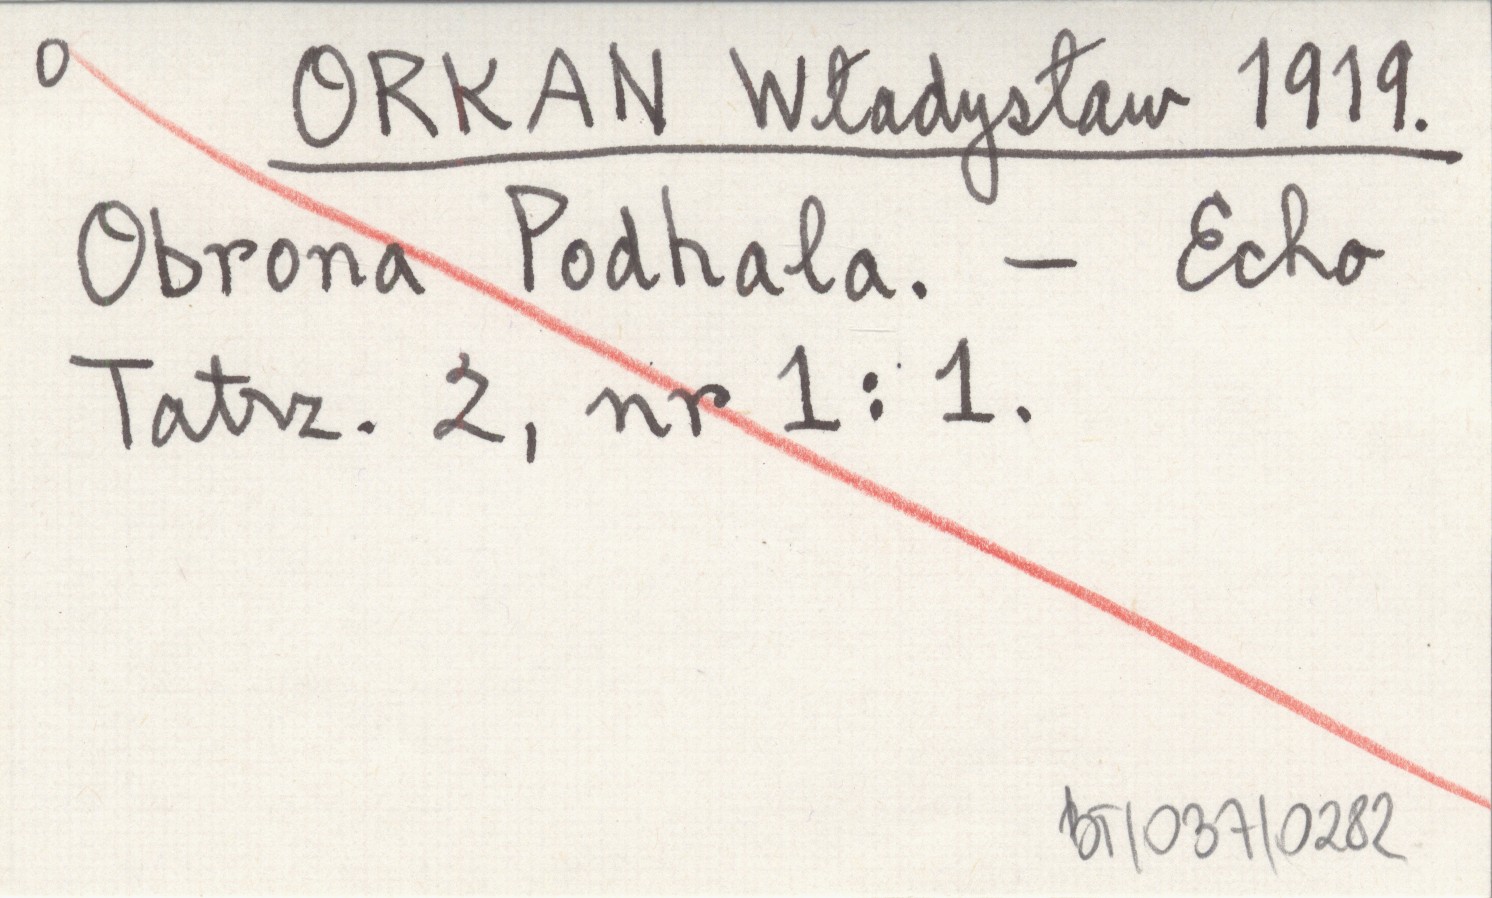 O ORKAN Władysław 1919.
Obrona Podhala. – Echo
Tatrz. 2, nr 1: 1.
BT/037/0282